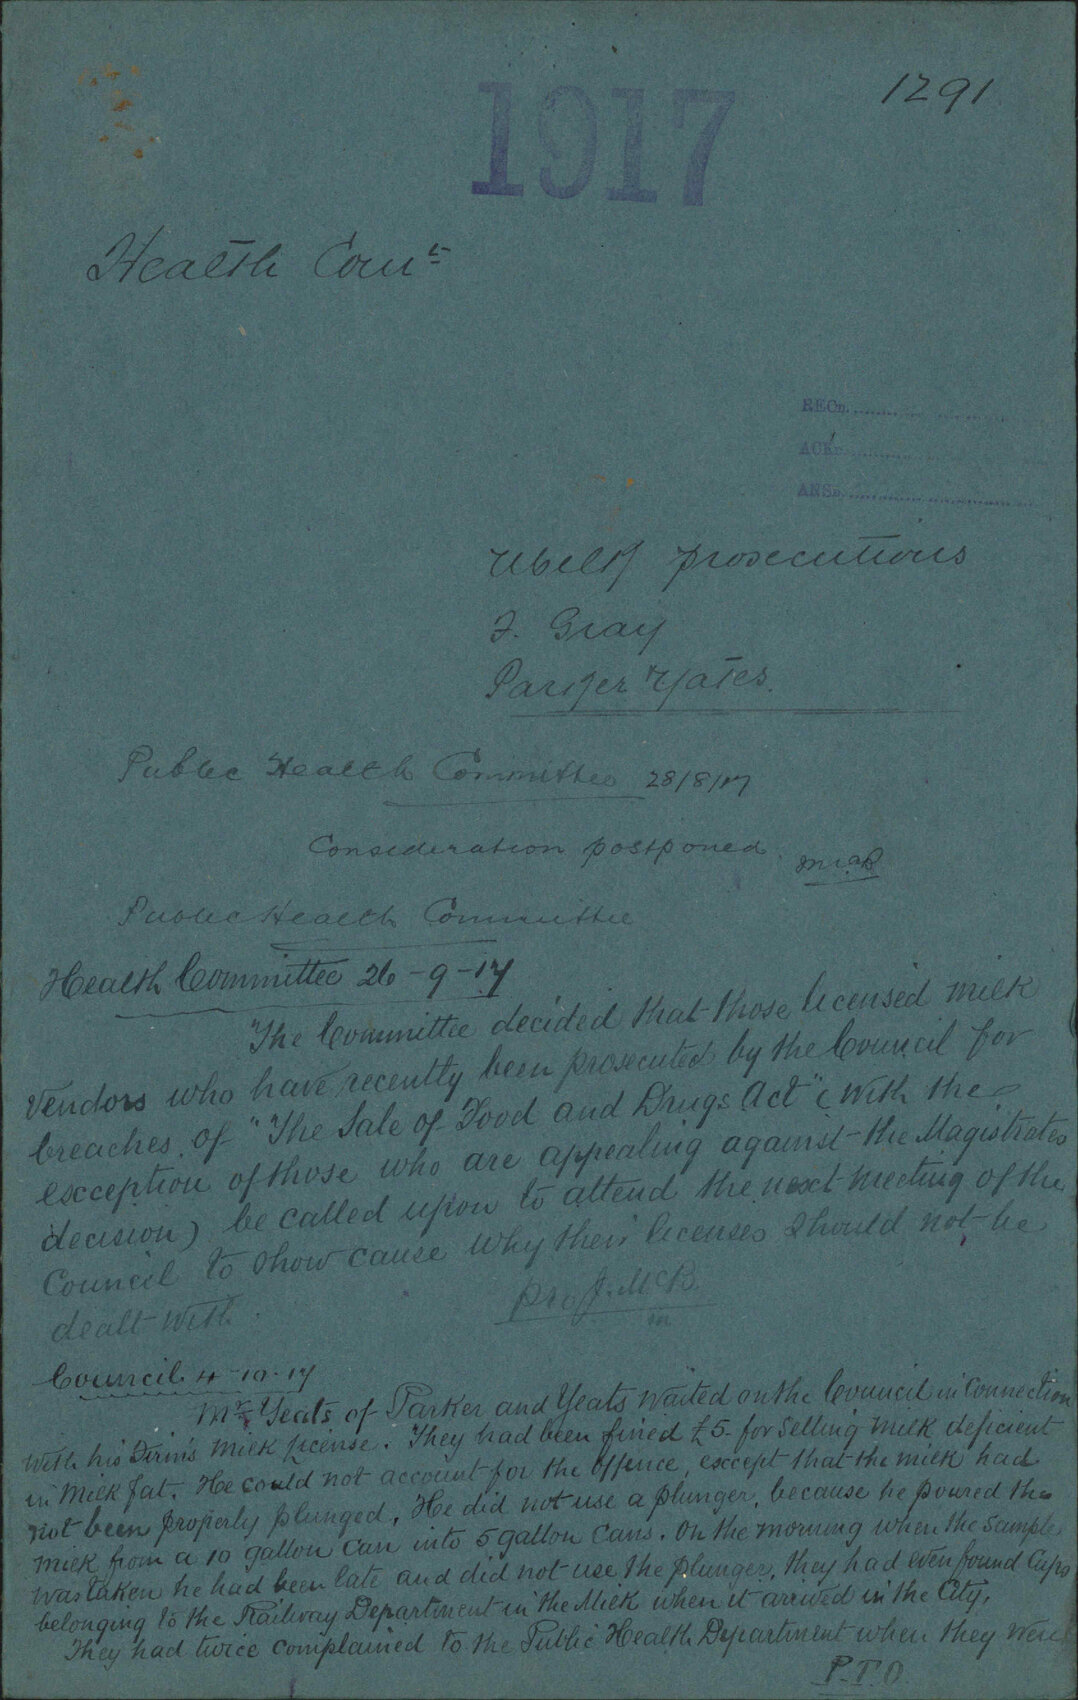 1917
1291
Health Comt
RECD.
ACKD.
ANSD.
Milk prosecutions
F. Gray
Parker Yates.
Public Health Committee 28/8/17
Consideration postponed
Public Health Committee
Health Committee 26-9-17
The Committee decided that those licensed milk
vendors who have recently been prosecuted by the Council for
breaches of "The Sale of Food and Drugs Act" (with the
exception of those who are appealing against the Magistrates
decision) be called upon to attend the next meeting of the
Council to show cause why their licenses should not be
dealt with.
pro J. McB.
Council 4-10-17
Mr Yeats of Parker and Yeats waited on the Council in connection
with his Firm's milk license. They had been fined £5 for selling milk deficient
in Milk fat. He could not account for the offence, except that the milk had
not been properly plunged. He did not use a plunger, because he poured the
milk from a 10 gallon can into 5 gallon cans. On the morning when the sample
was taken he had been late and did not use the plunger. They had even found Cups
belonging to the Railway Department in the Milk when it arrived in the City.
They had twice complained to the Public Health Department when they were
P.T.O.